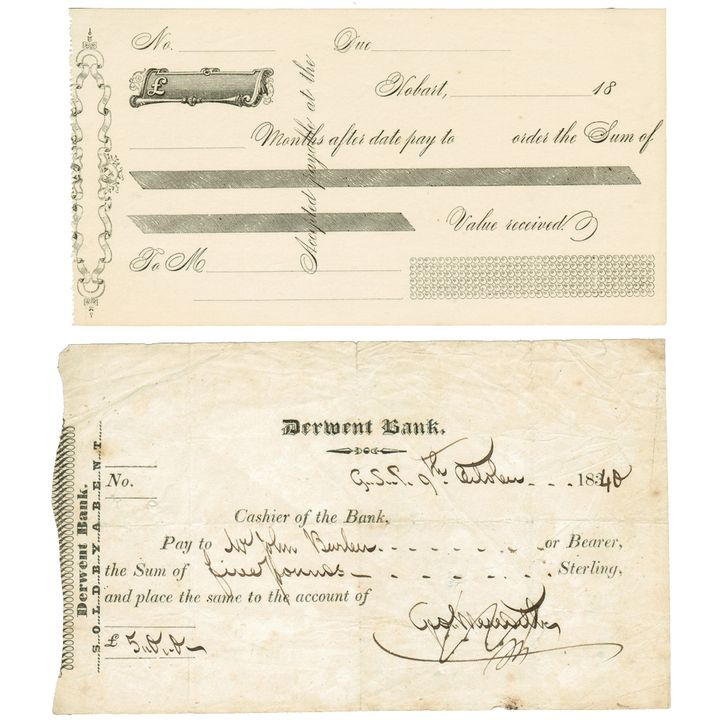 No. Due
£
Hobart, 18
Months after date pay to order the Sum of
Value received.
To M
Accepted payable at the
Derwent Bank.
G.S.P. 9th October 1840
No.
Cashier of the Bank,
Pay to Mr John or Bearer,
the Sum of five pounds Sterling,
and place the same to the account of
Geo Meredith
£ 5..0..0
Derwent Bank.
SOLD BY A BENT